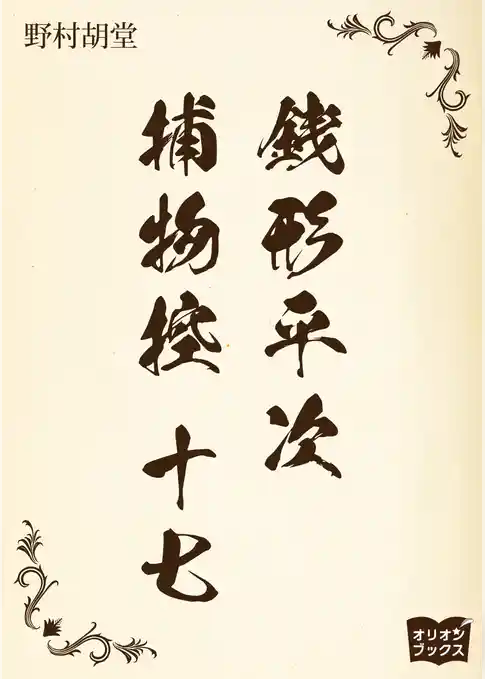 野村胡堂
銭形平次
捕物控 十七
オリオン
ブックス